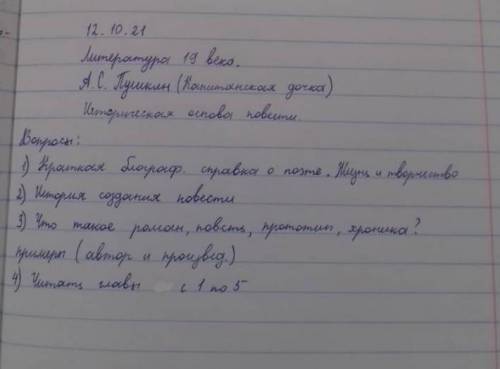 12.10.21
Литература 19 века.
А.С. Пушкин (Капитанская дочка)
Историческая основа повести.
Вопросы:
1) Краткая биограф. справка о поэте. Жизнь и творчество
2) История создания повести
3) Что такое роман, повесть, прототип, хроника?
примеры (автор и произвед.)
4) Читать главы с 1 по 5